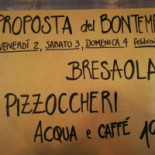 PROPOSTA del BONTEMP
VENERDÌ 2, SABATO 3, DOMENICA 4 febbraio
BRESAOLA
PIZZOCCHERI
ACQUA e CAFFÉ 1